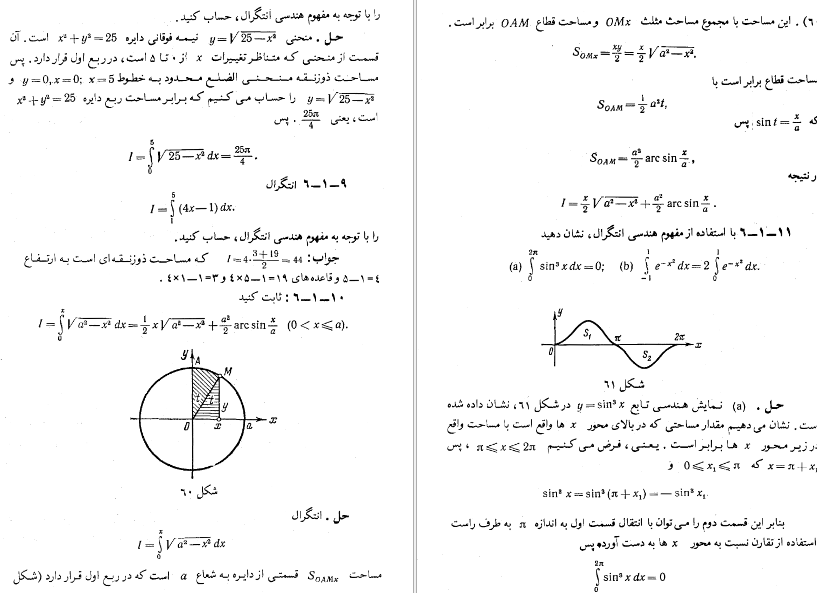 را با توجه به مفهوم هندسی انتگرال، حساب کنید.
حل. منحنی y = √25 − x² نیمه فوقانی دایره x² + y² = 25 است. آن
قسمت از منحنی که متناظر تغییرات x از ۰ تا ۵ است، در ربع اول قرار دارد. پس
مساحت ذوزنقه منحنی الضلع محدود به خطوط y = 0, x = 0; x = 5 و
y = √25 − x² را حساب می کنیم که برابر مساحت ربع دایره x² + y² = 25
است، یعنی 25π/4 . پس
I = ∫₀⁵ √25 − x² dx = 25π/4 .
۶–۱–۹ انتگرال
I = ∫₁⁵ (4x − 1) dx.
را با توجه به مفهوم هندسی انتگرال، حساب کنید.
جواب: I = 4 · (3 + 19)/2 = 44 که مساحت ذوزنقه ای است به ارتفاع
۵ − ۱ = ۴ و قاعده های ۴×۵ − ۱ = ۱۹ و ۴×۱ − ۱ = ۳ .
۶–۱–۱۰ : ثابت کنید
I = ∫₀ˣ √a² − x² dx = 1/2 x √a² − x² + a²/2 arc sin x/a (0 < x ⩽ a).
y
A
M
t t
y
0 x a x
شکل ۶۰
حل. انتگرال
I = ∫₀ˣ √a² − x² dx
مساحت S_OAMx قسمتی از دایره به شعاع a است که در ربع اول قرار دارد (شکل
۶۰). این مساحت با مجموع مساحت مثلث OMx و مساحت قطاع OAM برابر است.
S_OMx = xy/2 = x/2 √a² − x².
مساحت قطاع برابر است با
S_OAM = 1/2 a²t,
که sin t = x/a; پس
S_OAM = a²/2 arc sin x/a,
در نتیجه
I = x/2 √a² − x² + a²/2 arc sin x/a .
۶–۱–۱۱ با استفاده از مفهوم هندسی انتگرال، نشان دهید
(a) ∫₀²π sin³ x dx = 0; (b) ∫₋₁¹ e^−x² dx = 2 ∫₀¹ e^−x² dx.
y
S₁
0 π 2π x
S₂
شکل ۶۱
حل. (a) نمایش هندسی تابع y = sin³ x در شکل ۶۱، نشان داده شده
است. نشان می دهیم مقدار مساحتی که در بالای محور x ها واقع است با مساحت واقع
در زیر محور x ها برابر است. یعنی، فرض می کنیم π ⩽ x ⩽ 2π ، پس
x = π + x₁ که 0 ⩽ x₁ ⩽ π و
sin³ x = sin³ (π + x₁) = − sin³ x₁.
بنابر این قسمت دوم را می توان با انتقال قسمت اول به اندازه π به طرف راست
استفاده از تقارن نسبت به محور x ها به دست آورد. پس
∫₀²π sin³ x dx = 0